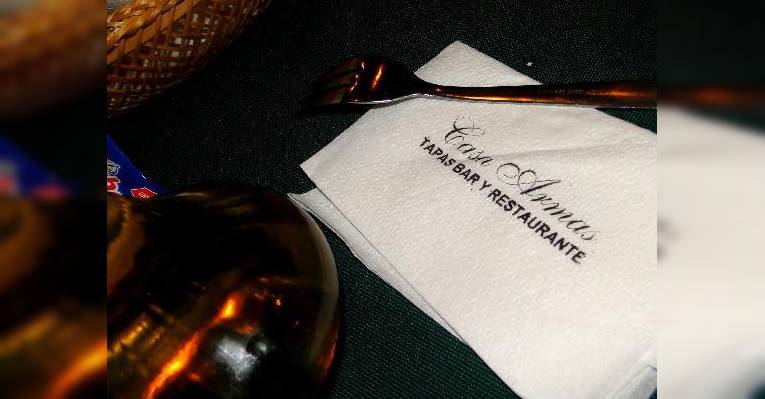 Casa Armas
TAPAS BAR Y RESTAURANTE